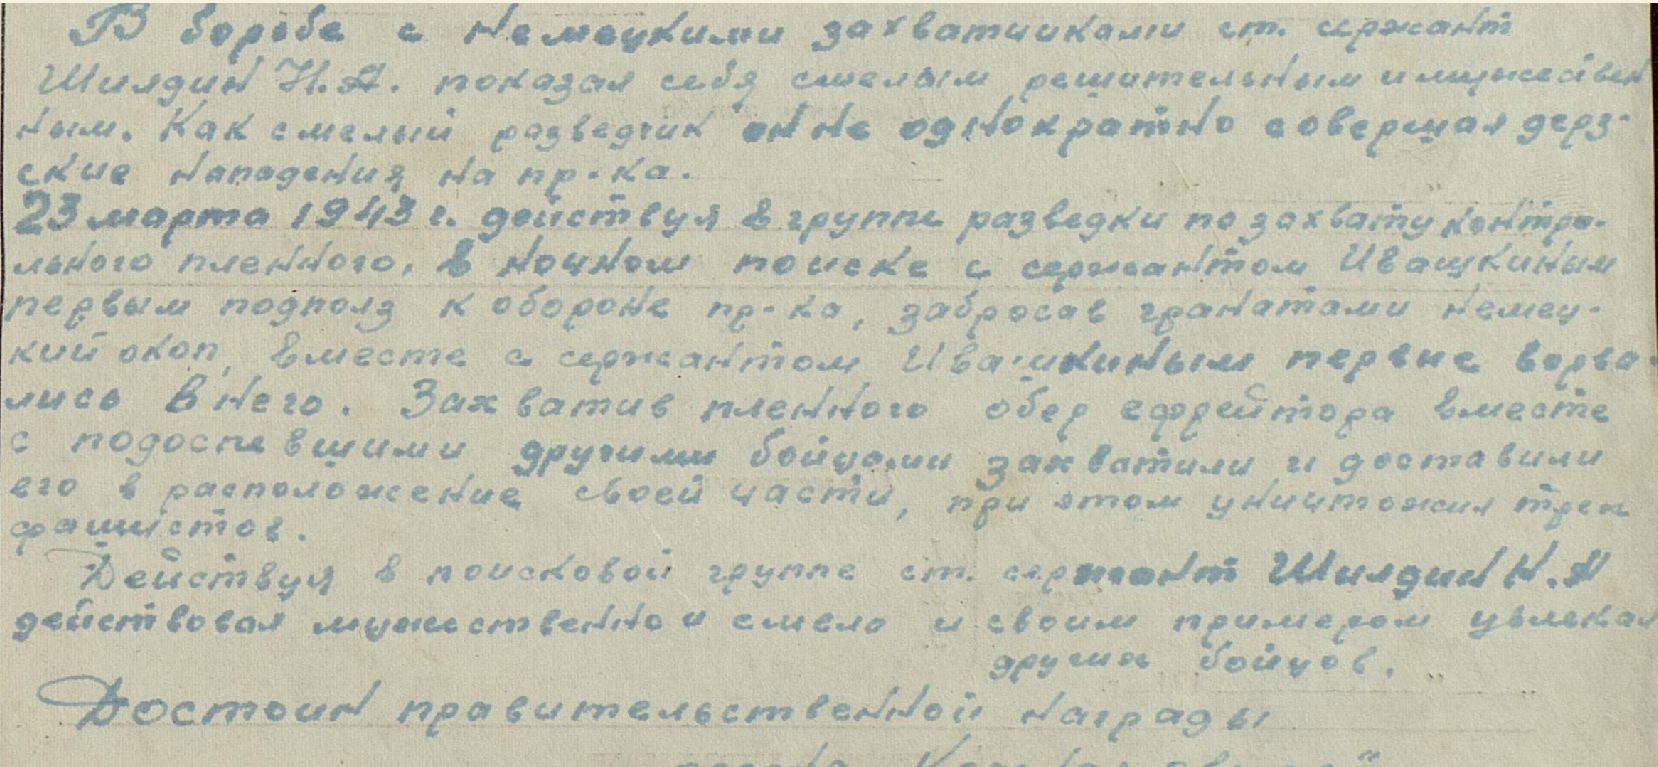 В борьбе с немецкими захватчиками ст. сержант
Шилдин Н.А. показал себя смелым решительным и мужествен
ным. Как смелый разведчик он не однократно совершал дерз-
ские нападения на пр-ка.
23 марта 1943 г. действуя в группе разведки по захвату контро-
льного пленного, в ночном поиске с сержантом Ивашкиным
первым подполз к обороне пр-ка, забросав гранатами немец-
кий окоп, вместе с сержантом Ивашкиным первые ворва-
лись в него. Захватив пленного обер ефрейтора вместе
с подоспевшими другими бойцами захватили и доставили
его в расположение своей части, при этом уничтожил трех
фашистов.
Действуя в поисковой группе ст. сержант Шилдин Н.А
действовал мужественно и смело и своим примером увлекал
других бойцов.
Достоин правительственной награды